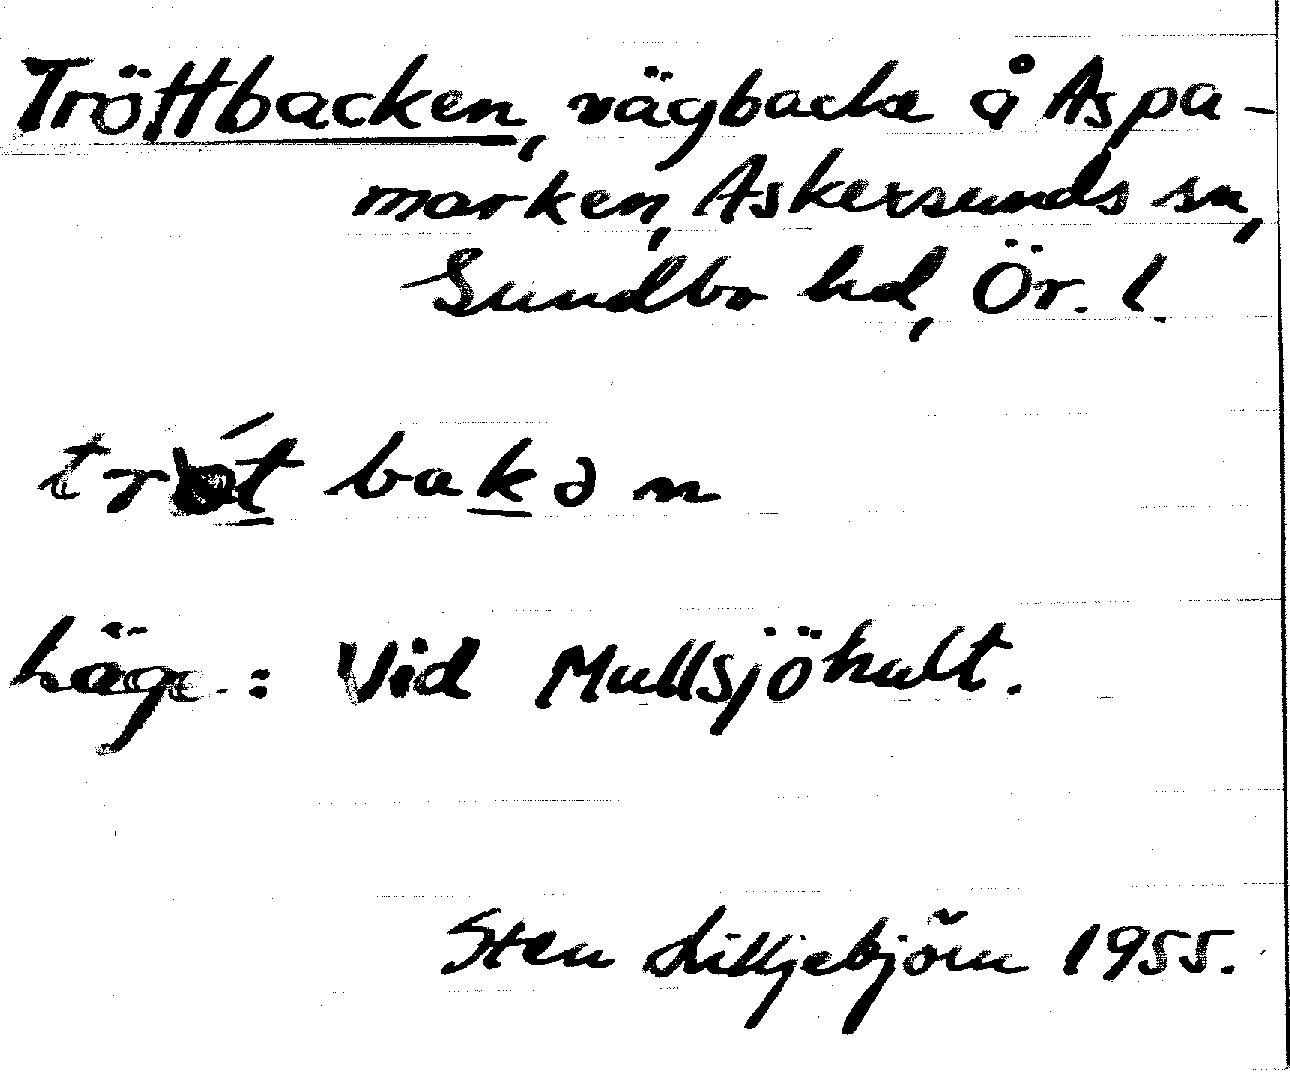 Tröttbacken, vägbacke å Aspa-
marken, Askersunds sn,
Sundbo hd, Ör. l.
bakən
Läge: Vid Mullsjöhult.
Sten Lilljebjörn 1955.